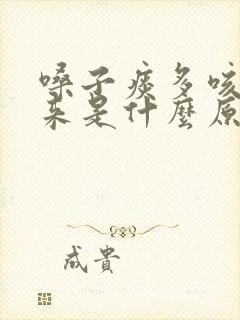 嗓子痰多咳
来是什麼原
成貴